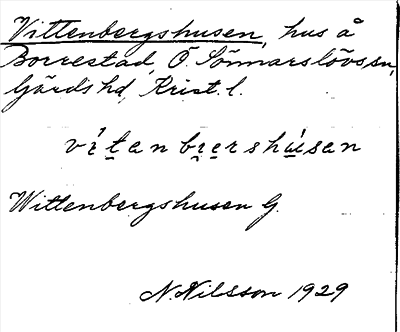 Vittenbergshusen, hus å
Borrestad, Ö. Sönnarslövs sn,
Gärds hd, Krist. l.
vítanbıerʂhúsan
Wittenbergshusen G.
N. Nilsson 1929